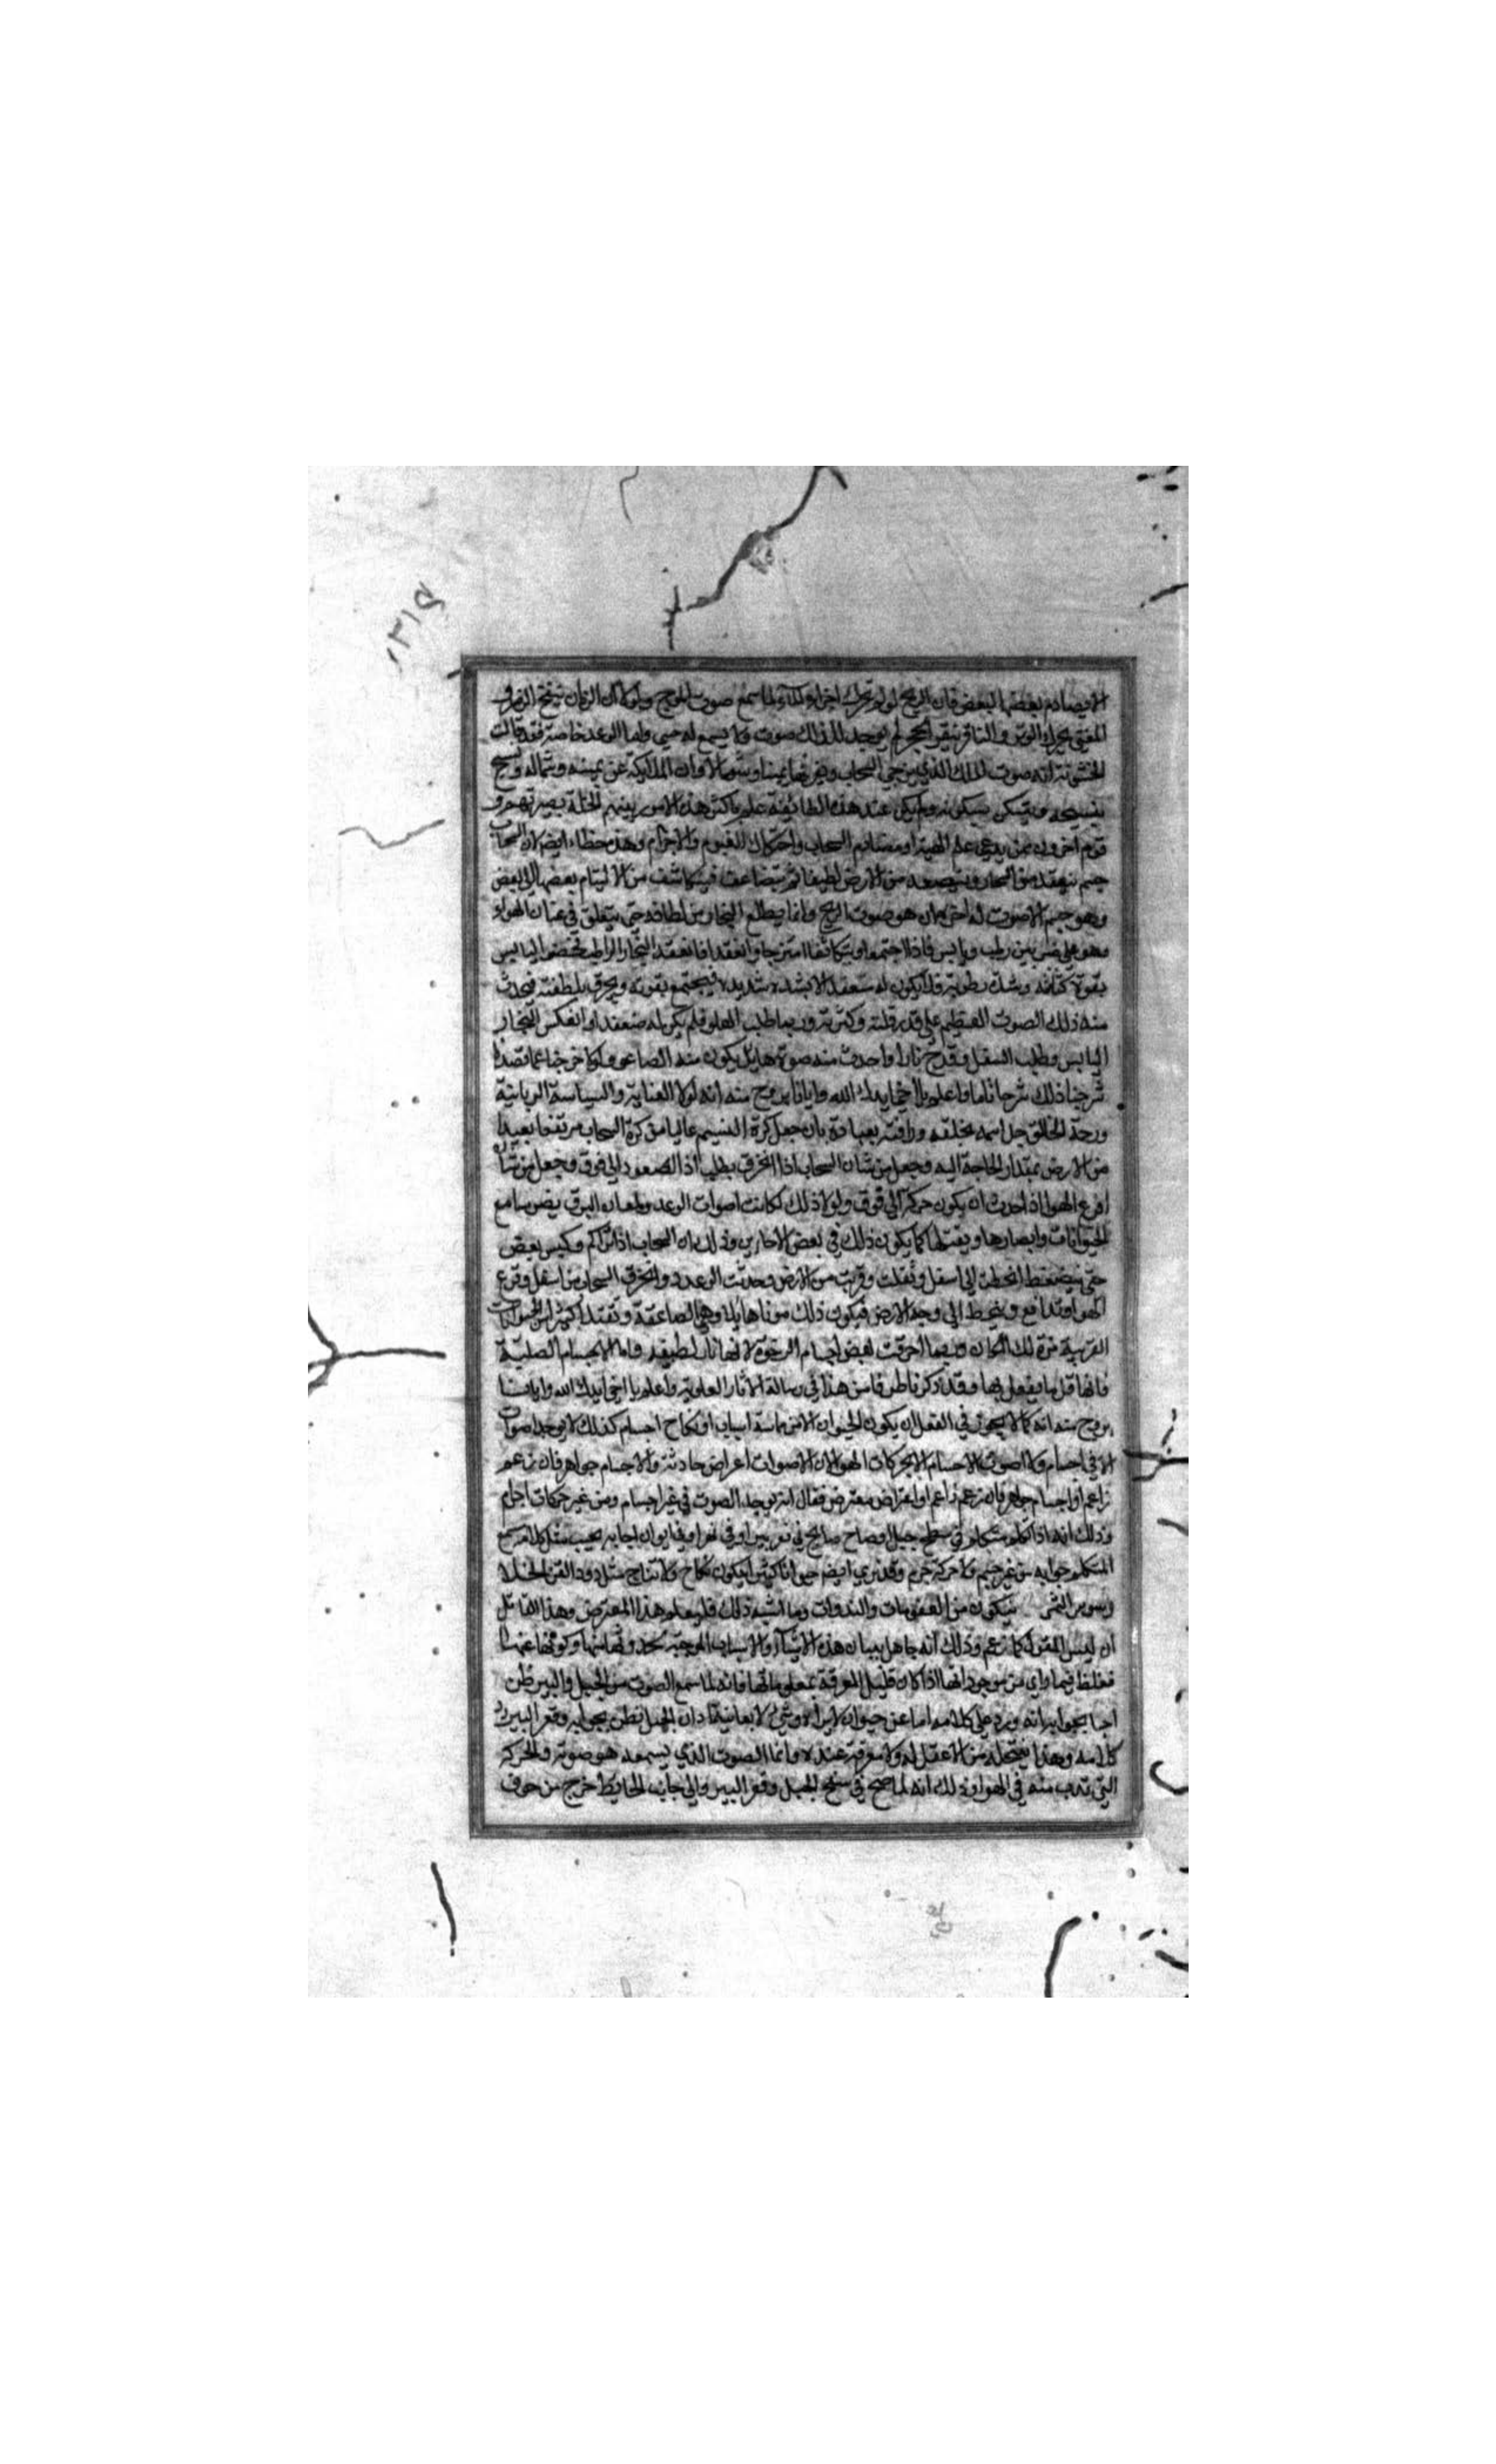 الا بصادم بعضها لبعض فان الريح لو لم تحرك اجزاء الماء لما سمع صوت الموج ولولا ان الزمار ينفخ الزمر و
المغني يحرك الوتر و الناقر ينقر الحجر لم يوجد لذلك صوت ولا يسمع له حس واما الرعد خاصة فقد قالت
الحشوية انه صوت الملك الذي يزجي السحاب ويفرقها يمينا وشمالا وان الملائكة عن يمينه وشماله وتسبح
بتسبيحه وتسكن بسكونه ولم يكن عند هذه الطائفة علم باكثر هذه الامور
قوم اخرون ممن يدعي علم الهيئة او مصادم السحاب واحتكاك الغيوم والاجرام وهذا خطاء ايضا لان السحاب
جسم ينعقد من البخار ويتصعد من الارض لطيفا ثم يتضاعف فيتكاثف من التيام بعضها الى بعض
وهو جسم لا صوت له هو صوت الريح وانما يطلع البخار من لطافته حتى يتعلق في عنان الهواء
وهو على ضربين رطب ويابس فاذا اجتمعا وتكاثفا امتزجا وانعقدا فانعقد البخار الرطب اليابس
بقوة كثافته وشدة رطوبته فلا يكون له منعقد الا بشدة شديدة فيجتمع بقوته ويخرق بلطفته فيحدث
منه ذلك الصوت العظيم على قدر قلته وكثرته وربما طلب العلو فلم يكن له مصعد او انعكس البخار
اليابس وطلب السفل وقدح نارا واحدث منه صوت هايل يكون منه الصاعقة ولولا خرجنا عما قصدنا
شرحنا ذلك شرحا تاما واعلم يا اخي ايدك الله وايانا بروح منه انه لولا العناية والسياسة الربانية
ورحمة الخالق جل اسمه بخلقه ورافته بعباده بان جعل كرة النسيم عاليا من كرة السحاب مرتفعا بعيدا
من الارض بمقدار الحاجة اليه وجعل من شان السحاب اذا انخرق يطلب الصعود الى فوق وجعل من شان
قرع الهواء اذا حدث ان يكون حركته الى فوق ولولا ذلك لكانت اصوات الرعد ولمعان البرق يضر سامع
الحيوانات وابصارها ويقتلها كما يكون ذلك في بعض الاحايين وذلك ان السحاب اذا تراكم وكبس بعض
حتى ينضغط انحطت الى اسفل وثقلت وقربت من الارض وحدثت الرعود وانخرق السحاب من اسفل وقرع
الهواء وتدافع وينحط الى وجه الارض فيكون ذلك صوتا هايلا وهي الصاعقة وتقتل كثيرا من الحيوانات
القريبة من ذلك المكان وربما احرقت بعض اجسام الرخوة لانها نار لطيفة واما الاجسام الصلبة
فانها قل ما يفعل بها وقد ذكرنا طرفا من هذا في رسالة الاثار العلوية واعلم يا اخي ايدك الله وايانا
بروح منه انه كما لا يجوز في العقل ان يكون الحيوان الا من او نكاح اجسام كذلك لا يوجد اصوات
الا في اجسام ولا اصوات الاجسام الا بحركات الهواء لان الاصوات اعراض حادثة والاجسام جواهر فان زعم
زاعم او اجسام جواهر فان زعم زاعم او اعتراض معترض فقال انه يوجد الصوت في غير اجسام ومن غير حركات اجرام
وذلك انه اذا تكلم متكلم في سطح جبل وصاح صايح في قعر بير او في نهر او في ايوان اجابه مجيب بمثل كلامه يسمع
المتكلم جوابه من غير جسم ولا حركة جرم وقد نرى ايضا حيوانا كثيرا يكون بلا نكاح ولا نتاج مثل دود القز الخلا
وسوس الثمر يتكون من العفونات والنداوات وما اشبه ذلك فليعلم هذا المعترض وهذا القائل
ان ليس القول كما زعم وذلك انه جاهل ببيان هذه الاشياء والاسباب الموجبة لحدوثها وكونها عنها
فغلط فيما راى من موجوداتها اذا كان قليل المعرفة بمعلوماتها فانه لما سمع الصوت من الجبل والبير ظن
اجابه جوابه ورد على كلامه اما عن حيوان لا يراه وشي لا يعاينه وان الجبل نطق بجوابه وقعر البير رد
كلامه وهذا ينتحله من لا عقل له ولا معرفة عنده وانما الصوت الذي يسمعه هو صوته والحركة
التي تذهب منه في الهواء وذلك انه لما صح في سفح الجبل وقعر البير والى جانب الحايط خرج من جوف